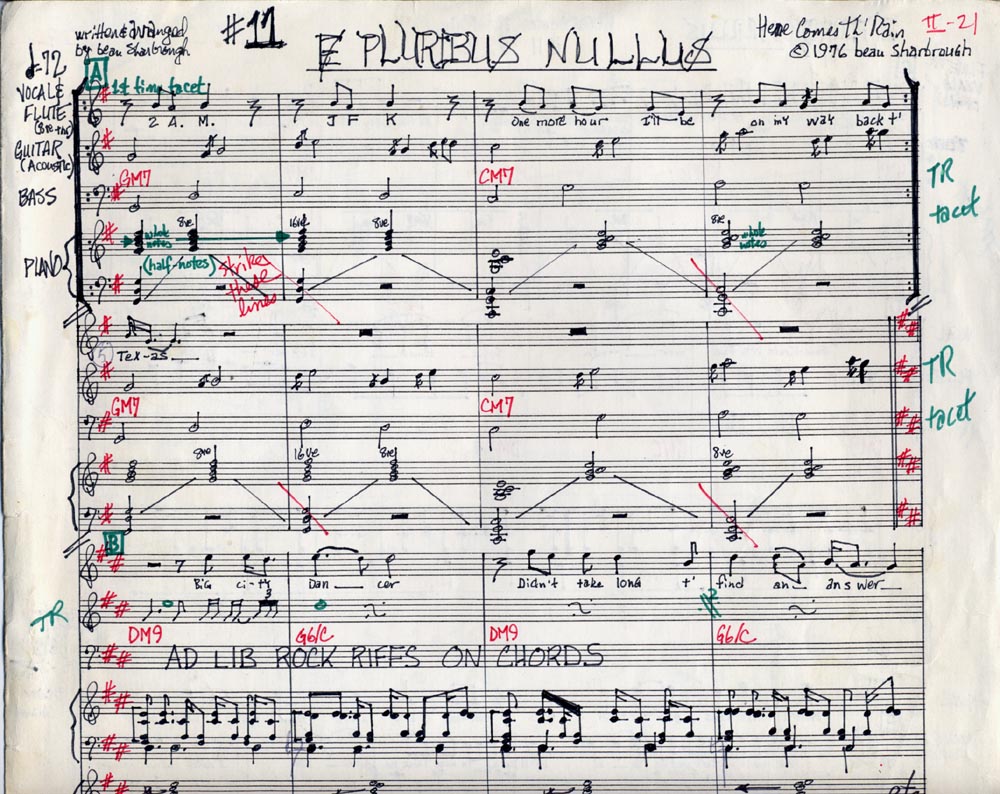 written & arranged
by beau Sharbrough
#11
E PLURIBUS NULLUS
Here Comes Th' Rain
© 1976 beau sharbrough
II-21
♩=72
A
1st time tacet
VOCALS
FLUTE
GUITAR
(Acoustic)
BASS
PIANO
2 A. M. J F K One more hour I'll be on my way back t'
GM7 CM7
TR
tacet
8ve 16ve 8ve 8ve
whole notes
whole notes
(half-notes)
strike
these
lines
Tex-as
TR
tacet
GM7 CM7
8ve 16ve 8ve 8ve
B
Big ci-ty Dan cer Didn't take long t' find an answer
TR
3
DM9 G6/C DM9 G6/C
AD LIB ROCK RIFFS ON CHORDS